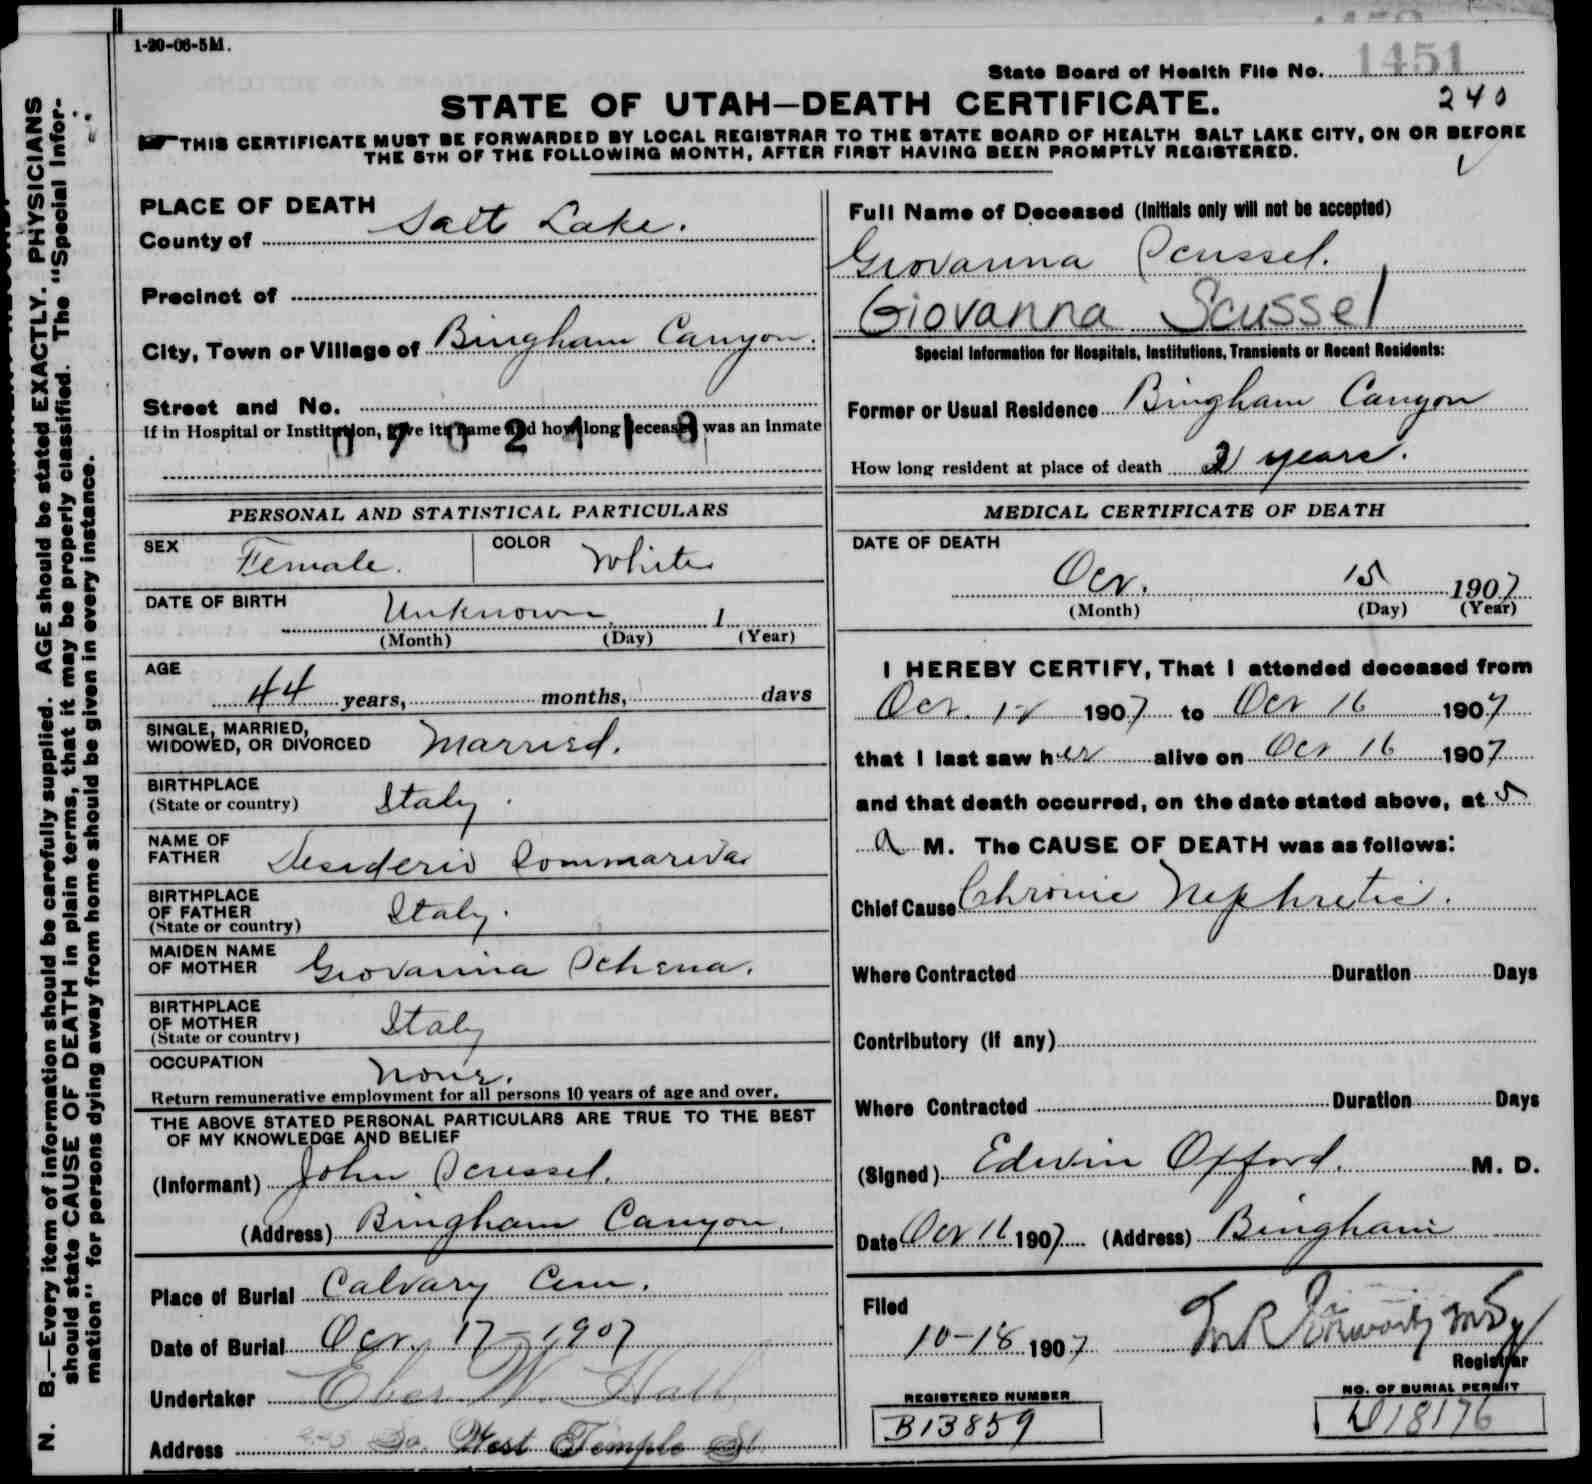 1-20-06-5M.
State Board of Health File No. 1451
240
STATE OF UTAH—DEATH CERTIFICATE.
THIS CERTIFICATE MUST BE FORWARDED BY LOCAL REGISTRAR TO THE STATE BOARD OF HEALTH SALT LAKE CITY, ON OR BEFORE
THE 5TH OF THE FOLLOWING MONTH, AFTER FIRST HAVING BEEN PROMPTLY REGISTERED.
N. B.—Every item of information should be carefully supplied. AGE should be stated EXACTLY. PHYSICIANS
should state CAUSE OF DEATH in plain terms, that it may be properly classified. The "Special Infor-
mation" for persons dying away from home should be given in every instance.
PLACE OF DEATH
County of Salt Lake.
Precinct of
City, Town or Village of Bingham Canyon.
Street and No.
If in Hospital or Institution, give its name and how long deceased was an inmate
PERSONAL AND STATISTICAL PARTICULARS
SEX Female. COLOR White
DATE OF BIRTH Unknown 1
(Month) (Day) (Year)
AGE
44 years, months, days
SINGLE, MARRIED,
WIDOWED, OR DIVORCED Married.
BIRTHPLACE
(State or country) Italy.
NAME OF
FATHER Desiderio Sommariva
BIRTHPLACE
OF FATHER
(State or country) Italy.
MAIDEN NAME
OF MOTHER Giovanina Schena.
BIRTHPLACE
OF MOTHER
(State or country) Italy
OCCUPATION
None.
Return remunerative employment for all persons 10 years of age and over.
THE ABOVE STATED PERSONAL PARTICULARS ARE TRUE TO THE BEST
OF MY KNOWLEDGE AND BELIEF
(Informant) John Scussel.
(Address) Bingham Canyon.
Place of Burial Calvary Cem.
Date of Burial Oct. 17-1907
Undertaker Eber W. Hall
Address So. West Temple St.
Full Name of Deceased (Initials only will not be accepted)
Giovanna Scussel.
Giovanna Scussel
Special Information for Hospitals, Institutions, Transients or Recent Residents:
Former or Usual Residence Bingham Canyon
How long resident at place of death 2 years.
MEDICAL CERTIFICATE OF DEATH
DATE OF DEATH
Oct. 15 1907
(Month) (Day) (Year)
I HEREBY CERTIFY, That I attended deceased from
Oct. 1907 to Oct 16 1907
that I last saw her alive on Oct 16 1907
and that death occurred, on the date stated above, at 5
a M. The CAUSE OF DEATH was as follows:
Chief Cause Chronic Nephretis.
Where Contracted Duration Days
Contributory (if any)
Where Contracted Duration Days
(Signed) Edwin Oxford. M. D.
Date Oct 16 1907 (Address) Bingham
Filed
10-18 1907
Registrar
REGISTERED NUMBER
B13859
NO. OF BURIAL PERMIT
D18176